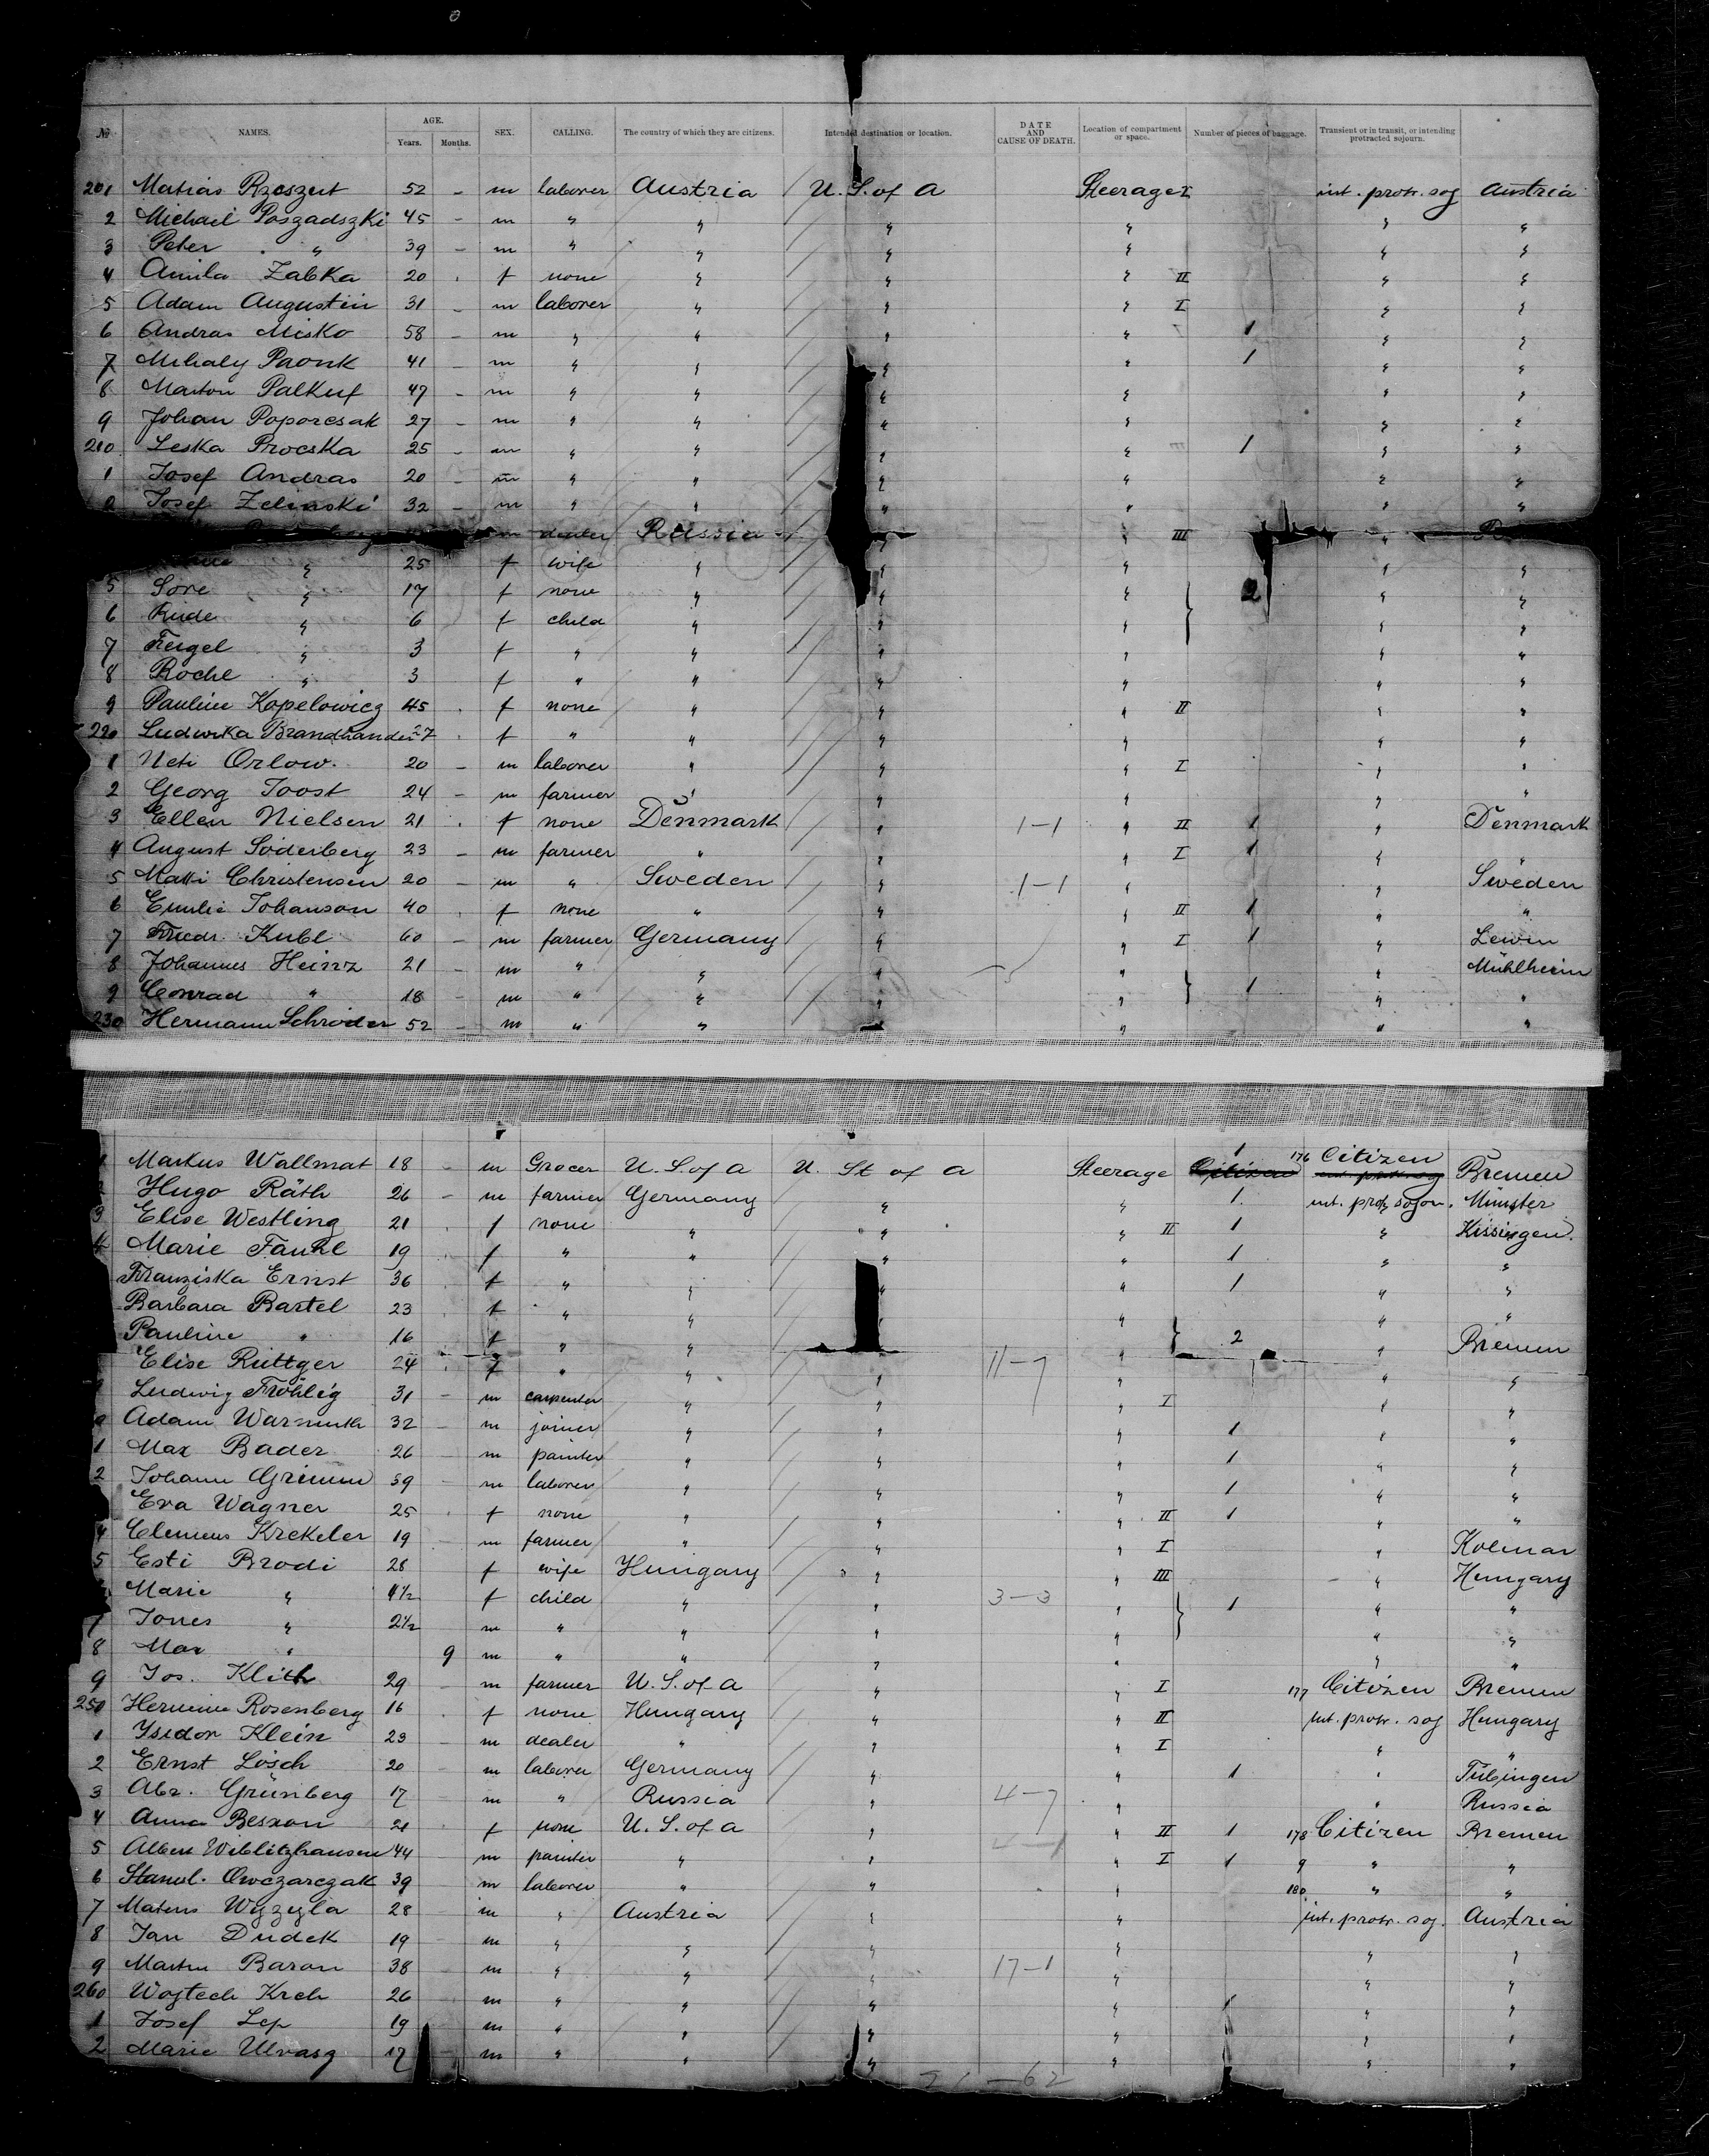 № NAMES. AGE. Years. Months. SEX. CALLING. The country of which they are citizens. Intended destination or location. DATE AND CAUSE OF DEATH. Location of compartment or space. Number of pieces of baggage. Transient or in transit, or intending protracted sojourn.
201 Matias Rzeszut 52 - m laborer Austria U. S. of A Steerage I int. protr. soj Austria
2 Michael Poszadszki 45 - m " " " " " "
3 Peter " 39 - m " " " " " "
4 Amila Zabka 20 . f none " " " II " "
5 Adam Augustin 31 - m laborer " " " I " "
6 Andras Misko 58 - m " " " " 1 " "
7 Mihaly Paonk 41 - m " " " " 1 " "
8 Marton Palkuf 47 - m " " " " " "
9 Johan Poporcsak 27 - m " " " " " "
210 Leska Procska 25 - m " " " " 1 " "
1 Josef Andras 20 - m " " " " " "
2 Josef Zelinski 32 - m " " " " " "
m dealer Russia " " III "
" 25 f wife " " " " "
5 Sore " 17 f none " " " 2 " "
6 Rude " 6 f child " " " " "
7 Feigel " 3 f " " " " " "
8 Roche " 3 f " " " " " "
9 Pauline Kopelowicz 45 . f none " " " II " "
220 Ludwika Brandhander 27 . f " " " " " "
1 Neti Orlow. 20 - m laborer " " " I " "
2 Georg Joost 24 - m farmer " " " " "
3 Ellen Nielsen 21 . f none Denmark " 1-1 " II 1 " Denmark
4 August Söderberg 23 - m farmer " " " I 1 " "
5 Matti Christensen 20 - m " Sweden " 1-1 " " Sweden
6 Emilie Johanson 40 . f none " " " II 1 " "
7 Friedr. Kubl 60 - m farmer Germany " " I 1 " Lewin
8 Johannes Heinz 21 - m " " " " " Mühlheim
9 Conrad " 18 - m " " " " 1 " "
230 Hermann Schröder 52 - m " " " " " "
1 Markus Wallmat 18 - m Grocer U. S. of A U. St of A Steerage 1 176 Citizen Bremen
2 Hugo Räth 26 - m farmer Germany " " 1 int. protr sojon. Münster
3 Elise Westling 21 . f none " " " II 1 " Kissingen.
4 Marie Fauhl 19 . f " " " " 1 " "
Franziska Ernst 36 . f " " " " 1 " "
Barbara Bartel 23 . f " " " " " "
Pauline " 16 . f " " " " 2 " Bremen
Elise Rüttger 24 . f " " " 11-7 " " "
Ludwig Fröhlig 31 - m carpenter " " " I " "
Adam Warmuth 32 - m joiner " " " 1 " "
1 Max Bader 26 - m painter " " " 1 " "
2 Johann Grimm 39 - m laborer " " " 1 " "
Eva Wagner 25 . f none " " " II 1 " "
4 Clemens Krekeler 19 - m farmer " " " I " Kolmar
5 Esti Brodi 28 f wife Hungary " " III " Hungary
Marie " 4½ f child " " 3-3 " 1 " "
7 Jones " 2½ m " " " " " "
8 Max " 9 m " " " " " "
9 Jos. Klith 29 - m farmer U. S. of A " " I 177 Citizen Bremen
250 Hermine Rosenberg 16 . f none Hungary " " II int. protr. soj Hungary
1 Ysidor Klein 23 - m dealer " " " I " "
2 Ernst Lösch 20 - m laborer Germany " " 1 " Tübingen
3 Abr. Grünberg 17 - m " Russia " 4-7 " " Russia
4 Anna Besxon 21 . f none U. S. of A " 4-1 " II 1 178 Citizen Bremen
5 Albert Wiblitzhausen 44 - m painter " " " I 1 9 " "
6 Stanisl. Owczarczak 39 m laborer " " " 180 " "
7 Mateus Wyzyla 28 m " Austria " " int. protr. soj. Austria
8 Jan Dudek 19 m " " " " " "
9 Martin Baran 38 m " " " 17-1 " " "
260 Wojtech Krch 26 m " " " " 1 " "
1 Josef Lep 19 m " " " " " "
2 Marie Ulvasz 17 m " " " " " "
21-62